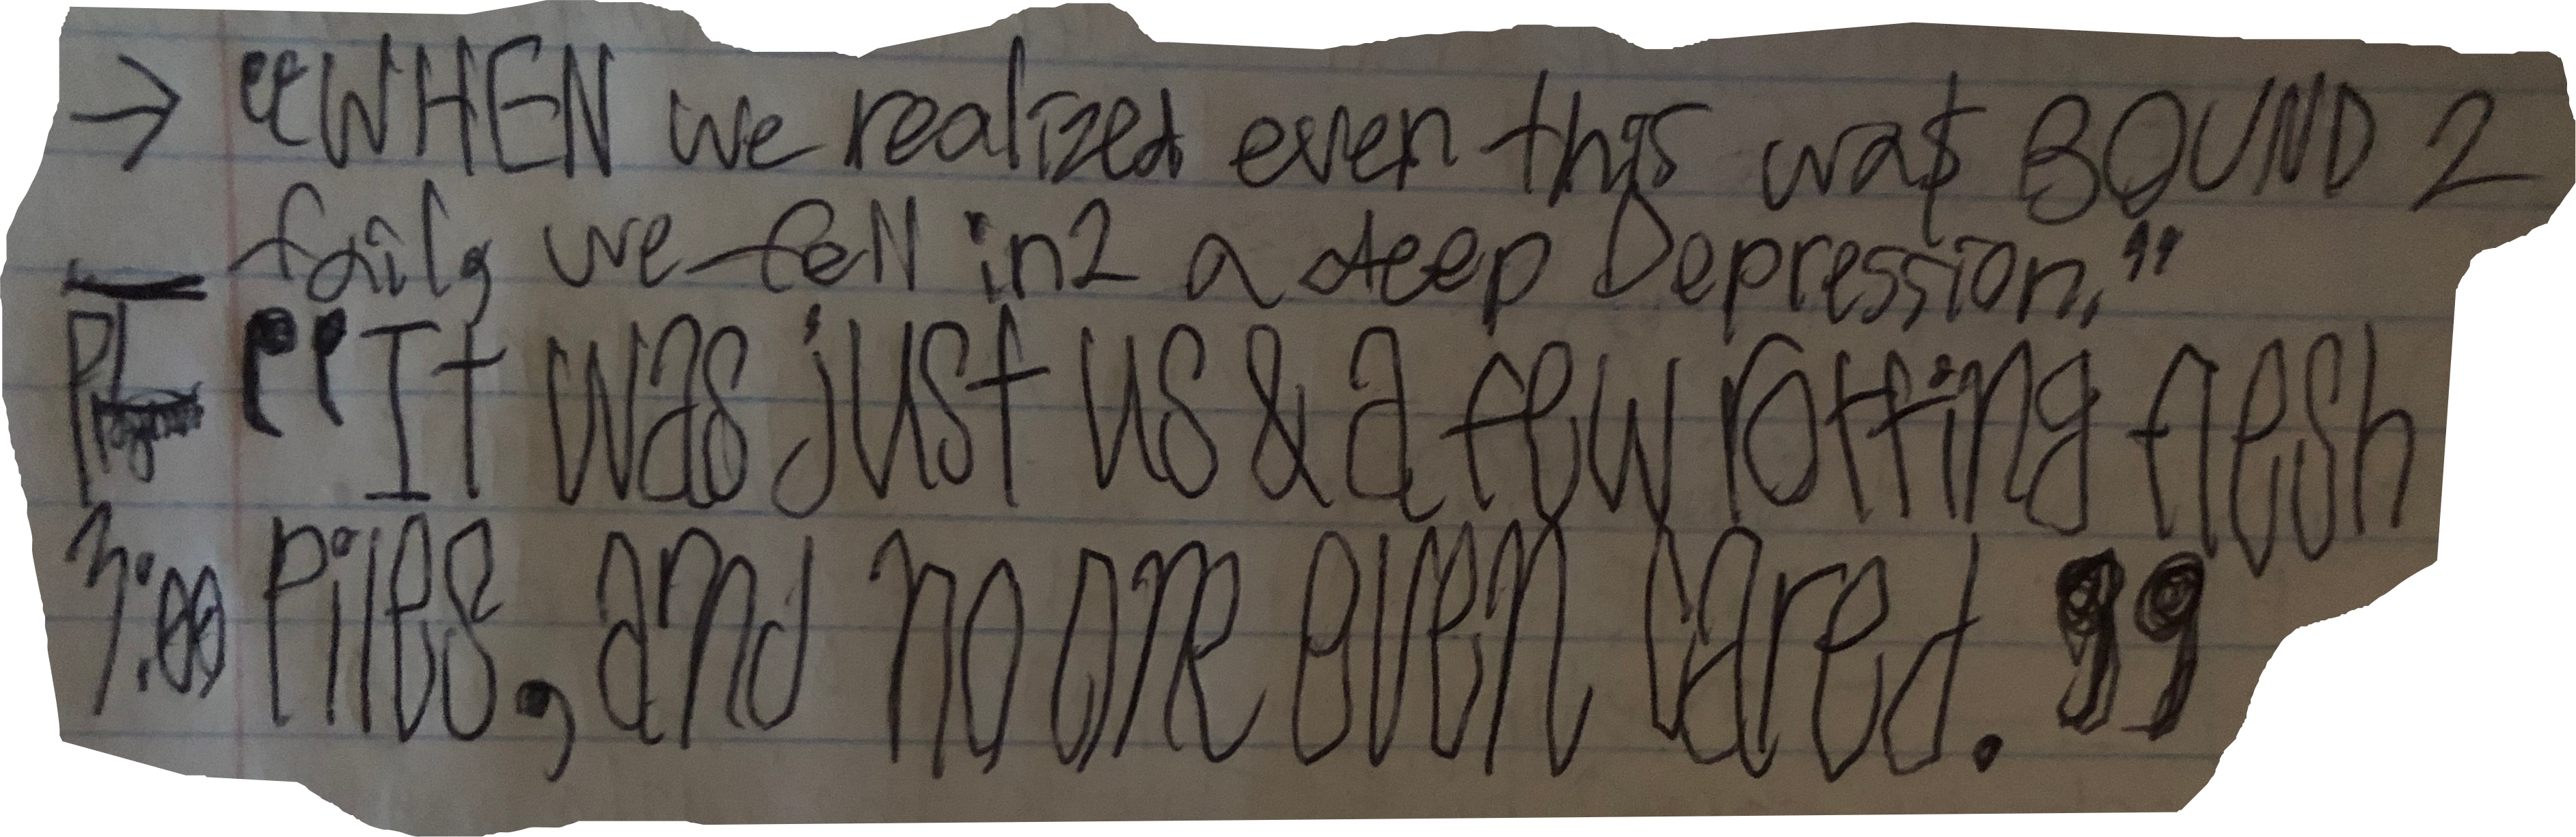 → "WHEN we realized even this wa$ BOUND 2
fail, we fell in2 a deep Depression."
"It was just us & a few rotting flesh
Piles, and no one even cared."